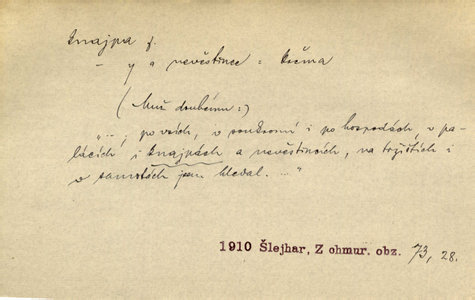 knajpa f.
– y a nevěstince : krčma
(Muž druhému:)
"...; po vsích, v soukromí i po hospodách, v pa-
lácích i knajpách a nevěstincích, na tržištích i
v samotách jsem hledal. ..."
1910 Šlejhar, Z chmur. obz. 73, 28.